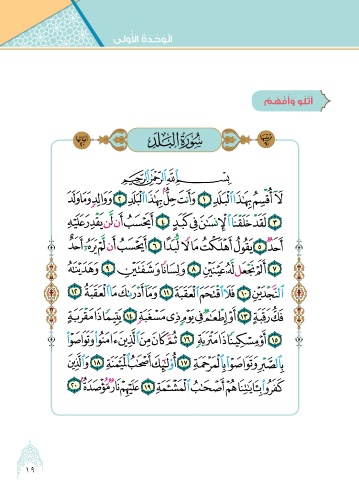 الْوَحْدَةُ الْأُولَى
أَتْلُو وَأَفْهَمُ
سُورَةُ الْبَلَدِ
بِسْمِ اللَّهِ الرَّحْمَٰنِ الرَّحِيمِ
لَآ أُقْسِمُ بِهَٰذَا ٱلْبَلَدِ ١ وَأَنتَ حِلٌّۢ بِهَٰذَا ٱلْبَلَدِ ٢ وَوَالِدٍ وَمَا وَلَدَ
٣ لَقَدْ خَلَقْنَا ٱلْإِنسَٰنَ فِى كَبَدٍ ٤ أَيَحْسَبُ أَن لَّن يَقْدِرَ عَلَيْهِ
أَحَدٌ ٥ يَقُولُ أَهْلَكْتُ مَالًا لُّبَدًا ٦ أَيَحْسَبُ أَن لَّمْ يَرَهُۥٓ أَحَدٌ
٧ أَلَمْ نَجْعَل لَّهُۥ عَيْنَيْنِ ٨ وَلِسَانًا وَشَفَتَيْنِ ٩ وَهَدَيْنَٰهُ
ٱلنَّجْدَيْنِ ١٠ فَلَا ٱقْتَحَمَ ٱلْعَقَبَةَ ١١ وَمَآ أَدْرَىٰكَ مَا ٱلْعَقَبَةُ ١٢
فَكُّ رَقَبَةٍ ١٣ أَوْ إِطْعَٰمٌ فِى يَوْمٍ ذِى مَسْغَبَةٍ ١٤ يَتِيمًا ذَا مَقْرَبَةٍ
١٥ أَوْ مِسْكِينًا ذَا مَتْرَبَةٍ ١٦ ثُمَّ كَانَ مِنَ ٱلَّذِينَ ءَامَنُوا۟ وَتَوَاصَوْا۟
بِٱلصَّبْرِ وَتَوَاصَوْا۟ بِٱلْمَرْحَمَةِ ١٧ أُو۟لَٰٓئِكَ أَصْحَٰبُ ٱلْمَيْمَنَةِ ١٨ وَٱلَّذِينَ
كَفَرُوا۟ بِـَٔايَٰتِنَا هُمْ أَصْحَٰبُ ٱلْمَشْـَٔمَةِ ١٩ عَلَيْهِمْ نَارٌ مُّؤْصَدَةٌۢ ٢٠
١٩